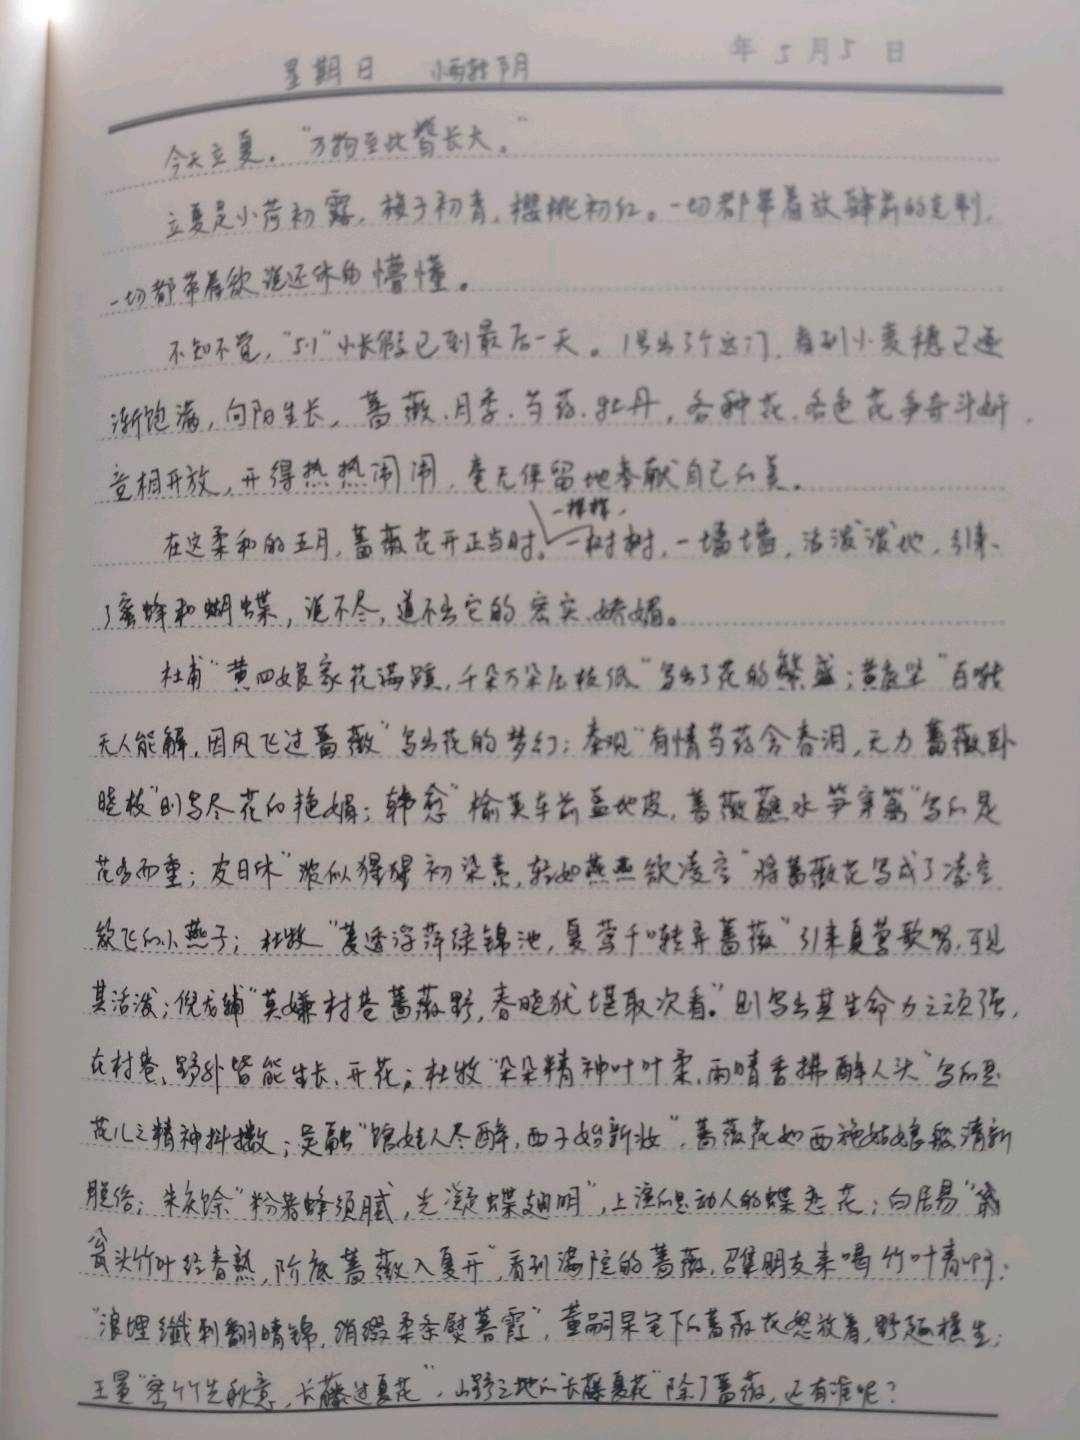 年5月5日
星期日 小雨转阴
今天立夏。“万物至此皆长大。”
立夏是小荷初露，梅子初青，樱桃初红。一切都带着放肆前的克制，
一切都带着欲说还休的懵懂。
不知不觉，“51”小长假已到最后一天。1号出了个远门，看到小麦穗已逐
渐饱满，向阳生长，蔷薇、月季、芍药、牡丹，各种花、各色花争奇斗妍，
竞相开放，开得热热闹闹，毫无保留地奉献自己的美。
一排排，
在这柔和的五月，蔷薇花开正当时。一树树，一墙墙，活泼泼地，引来
了蜜蜂和蝴蝶，说不尽，道不出它的密实、娇媚。
杜甫“黄四娘家花满蹊，千朵万朵压枝低”写出了花的繁盛；黄庭坚“百啭
无人能解，因风飞过蔷薇”写出花的梦幻；秦观“有情芍药含春泪，无力蔷薇卧
晓枝”则写尽花的艳媚；韩愈“榆荚车前盖地皮，蔷薇蘸水笋穿篱”写的是
花多而重；皮日休“浓似猩猩初染素，轻如燕燕欲凌空”将蔷薇花写成了凌空
欲飞的小燕子；杜牧“菱透浮萍绿锦池，夏莺千啭弄蔷薇”引来夏莺歌唱，可见
其活泼；倪龙辅“莫嫌村巷蔷薇野，春晓犹堪取次看。”则写出其生命力之顽强，
在村巷、野外皆能生长、开花；杜牧“朵朵精神叶叶柔，雨晴香拂醉人头”写的是
花儿之精神抖擞；吴融“馆娃人尽醉，西子始新妆”，蔷薇花如西施姑娘般清新
脱俗；朱庆馀“粉著蜂须腻，光凝蝶翅明”，上演的是动人的蝶恋花；白居易“
瓮头竹叶经春熟，阶底蔷薇入夏开”，看到满院的蔷薇，召集朋友来喝竹叶青啊；
“浪埋纤刺翻晴锦，绡缀柔条熨暮霞”，董嗣杲笔下的蔷薇花怒放着，野趣横生；
王  “密竹先秋意，长藤过夏花”，山野之地的“长藤夏花”除了蔷薇，还有谁呢？